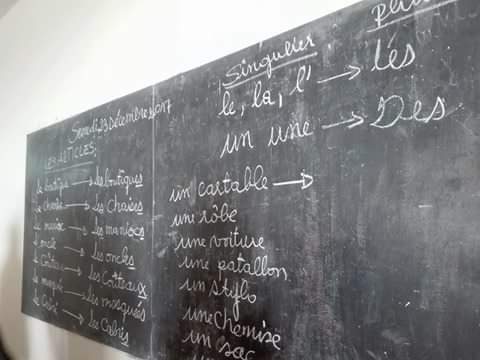 Samedi 23 Décembre 2017
LES ARTICLES:
la boutique → les boutiques
la chaise → les Chaises
le manioc → les maniocs
le oncle → les oncles
le Couteau → les Coutteaux
le masqué → les mosqués
le Cahié → les Cahiés
Singulier
le, la, l' → les
un une → Des
un cartable →
une rôbe
une voiture
une patallon
un stylo
une chemise
un sac